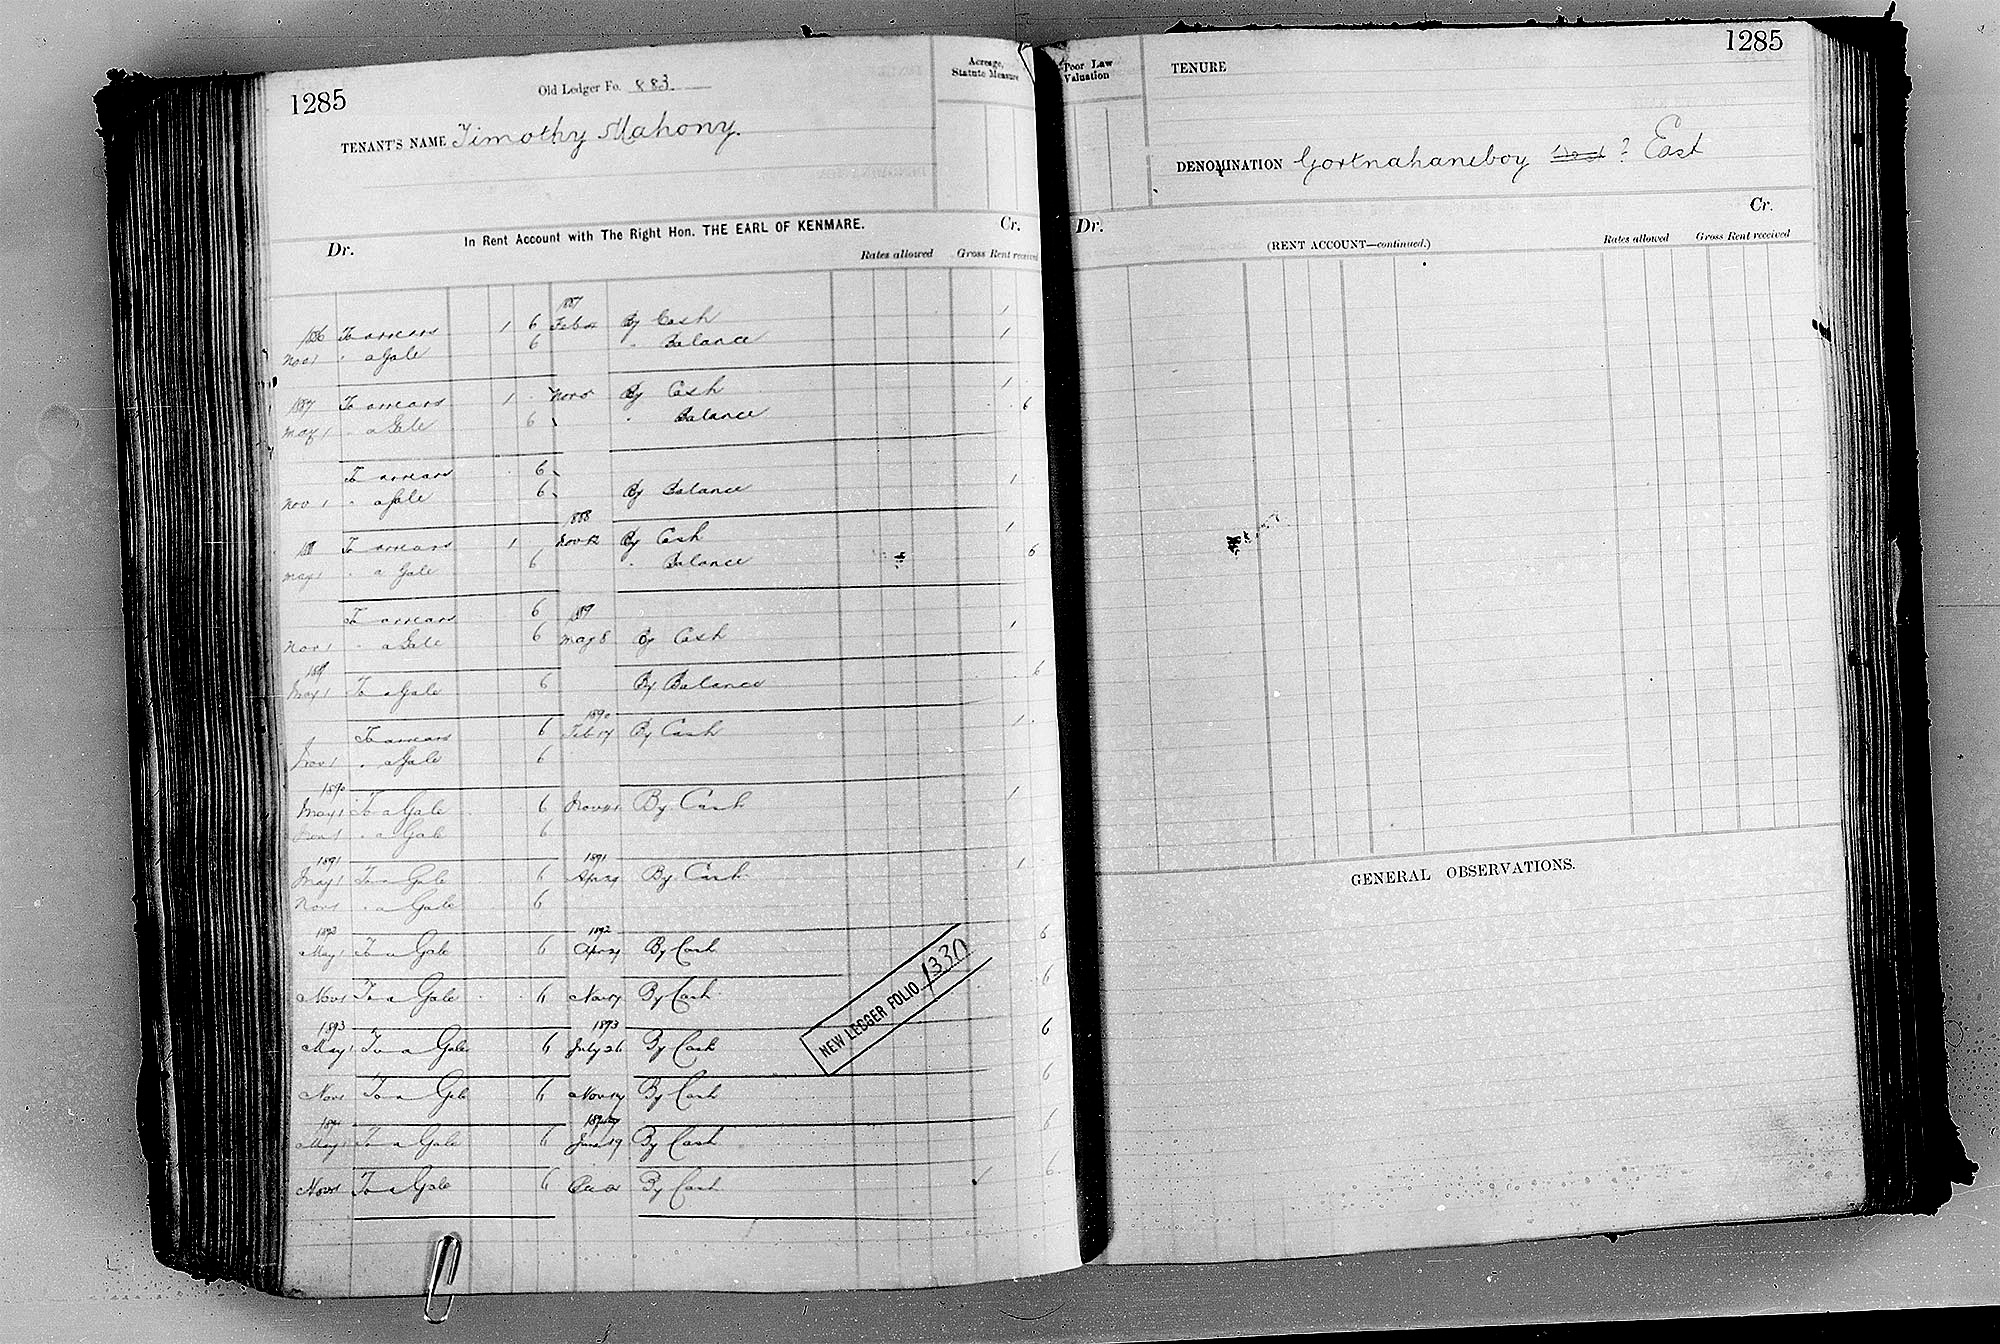 1285
Old Ledger Fo. 883.
TENANT'S NAME Timothy Mahony.
Acreage, Statute Measure
In Rent Account with The Right Hon. THE EARL OF KENMARE.
Dr. Cr.
Rates allowed Gross Rent received
1887
1886 To arrears 1 6 Feb By Cash 1
Nov 1 " a Gale 6 " Balance 1
1887 To arrears 1 Nov 5 By Cash 1
May 1 " a Gale 6 " Balance 6
To arrears 6
Nov 1 " a Gale 6 By Balance 1
1888
To arrears 1 Nov 12 By Cash 1
May 1 " a Gale 6 " Balance 6
To arrears 6 1889
Nov 1 " a Gale 6 May 8 By Cash 1
1889
May 1 To a Gale 6 By Balance 6
1890
To arrears 6 Feb 17 By Cash 1
Nov 1 " a Gale 6
1890
May 1 To a Gale 6 Nov 21 By Cash 1
Nov 1 " a Gale 6
1891 1891
May 1 To a Gale 6 Apr 29 By Cash 1
Nov 1 " a Gale 6
1892
May 1 To a Gale 6 Apr 29 By Cash 6
Nov 1 To a Gale 6 Nov 17 By Cash 6
1893 1893
May 1 To a Gale 6 July 26 By Cash 6
Nov 1 To a Gale 6 Nov 14 By Cash 6
1894
May 1 To a Gale 6 June 19 By Cash 6
Nov 1 To a Gale 6 By Cash 6
NEW LEDGER FOLIO 1330
1285
Poor Law Valuation
TENURE
DENOMINATION Gortnahaneboy West ? East
Dr. Cr.
(RENT ACCOUNT—continued.)
Rates allowed Gross Rent received
GENERAL OBSERVATIONS.